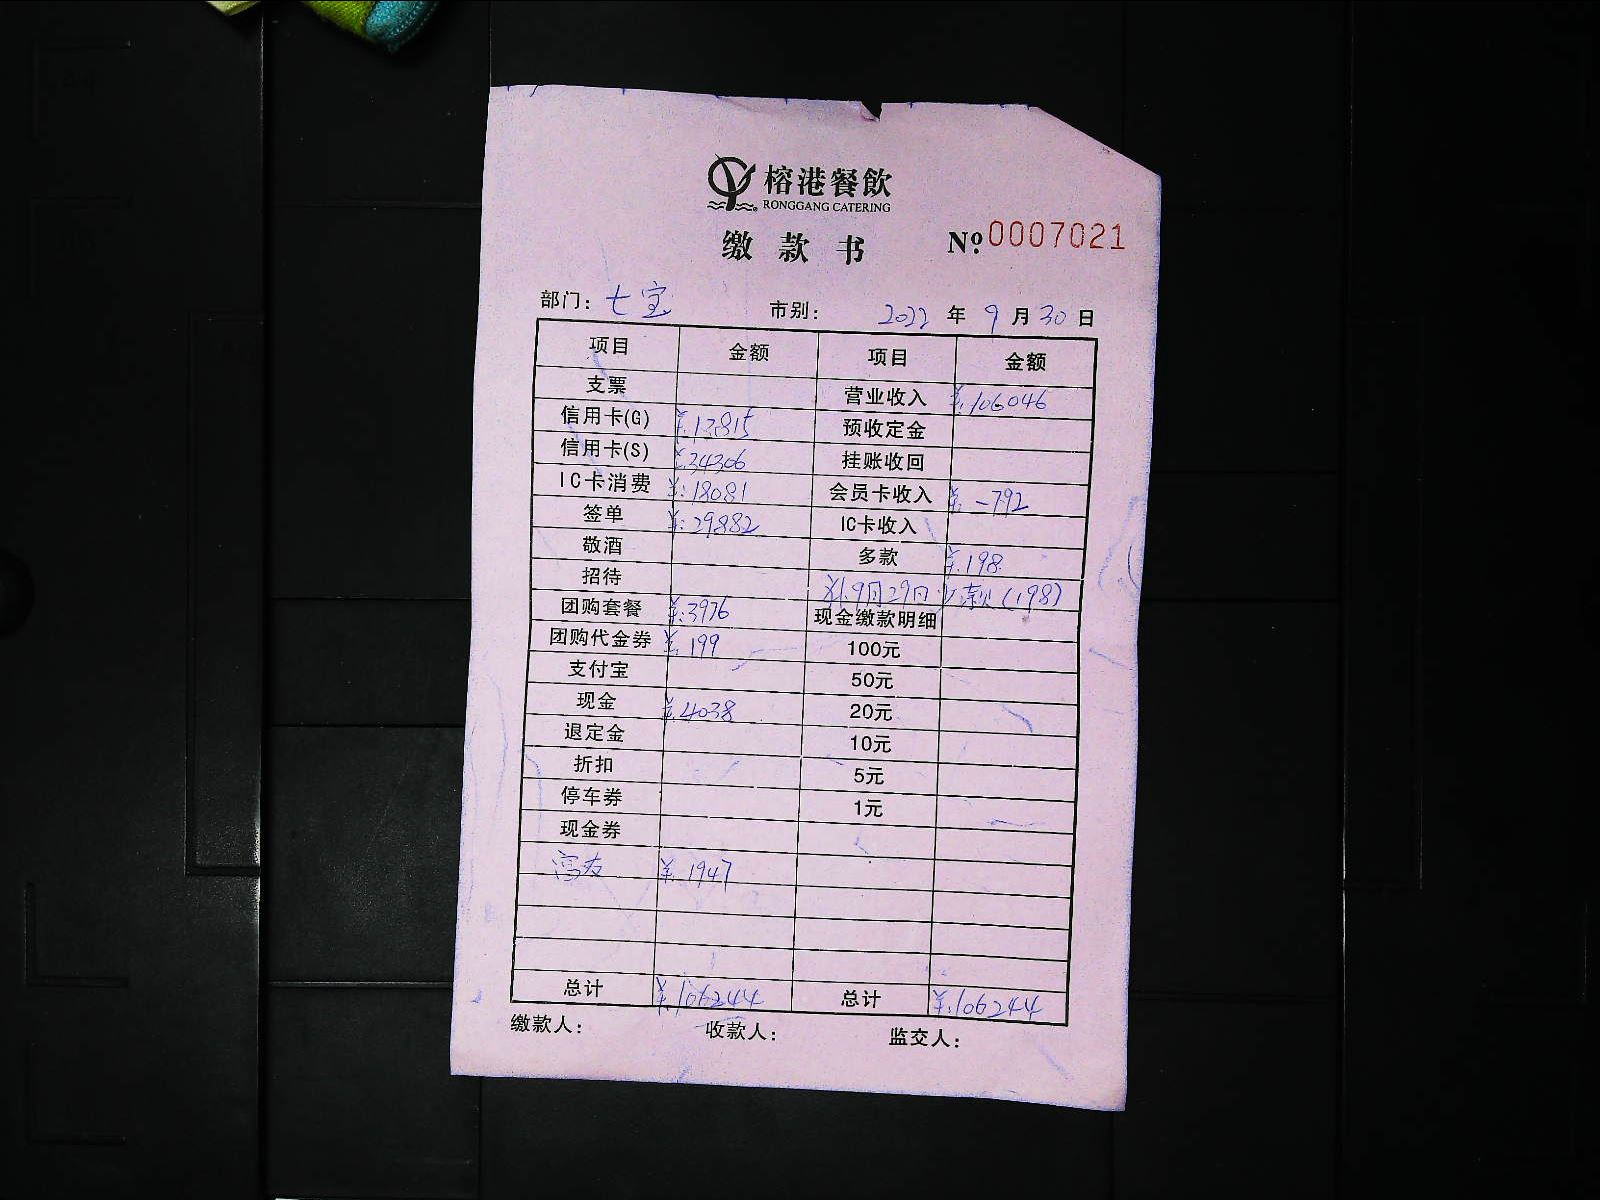 榕港餐飲
RONGGANG CATERING
缴款书 Nº 0007021
部门：七宝 市别： 2022 年 9 月 30 日
项目 金额 项目 金额
支票 营业收入 ¥:106046
信用卡(G) ¥:13815 预收定金
信用卡(S) ¥:34306 挂账收回
IC卡消费 ¥:18081 会员卡收入 ¥: -792
签单 ¥:29882 IC卡收入
敬酒 多款 ¥:198
招待 补9月29日少款(198)
团购套餐 ¥:3976 现金缴款明细
团购代金券 ¥:199 100元
支付宝 50元
现金 ¥:4038 20元
退定金 10元
折扣 5元
停车券 1元
现金券
¥: 1947
总计 ¥:106244 总计 ¥:106244
缴款人： 收款人： 监交人：